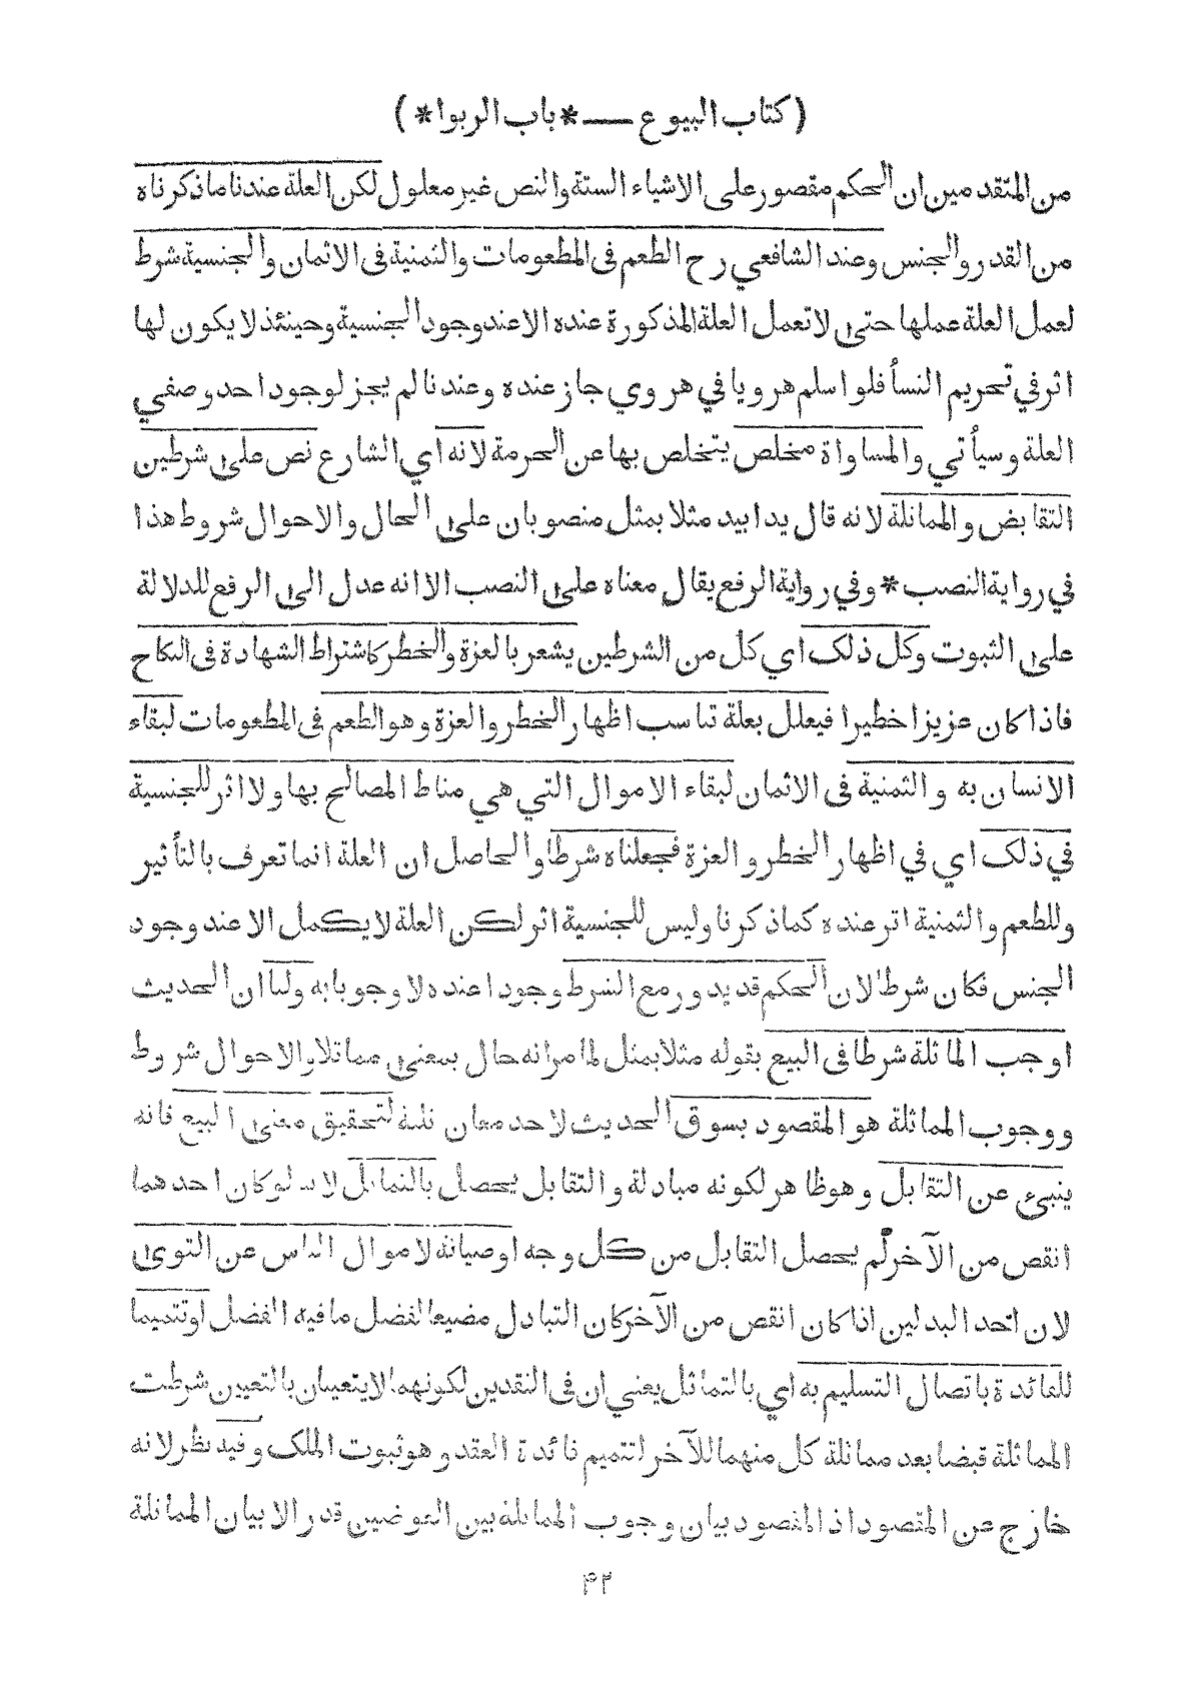 ( كتاب البيوع —* باب الربوا * )
من المتقدمين ان الحكم مقصور على الاشياء الستة والنص غير معلول لكن العلة عندنا ما ذكرناه
من القدر والجنس وعند الشافعي رح الطعم فى المطعومات والثمنية فى الاثمان والجنسية شرط
لعمل العلة عملها حتى لا تعمل العلة المذكورة عنده الا عند وجود الجنسية وحينئذ لا يكون لها
اثر في تحريم النسأ فلو اسلم هرويا في هروي جاز عنده وعندنا لم يجز لوجود احد وصفي
العلة وسيأتي والمساواة مخلص يتخلص بها عن الحرمة لانه اي الشارع نص على شرطين
التقابض والمماثلة لانه قال يدا بيد مثلا بمثل منصوبان على الحال والاحوال شروط هذا
في رواية النصب * وفي رواية الرفع يقال معناه على النصب الا انه عدل الى الرفع للدلالة
على الثبوت وكل ذلك اي كل من الشرطين يشعر بالعزة والخطر كاشتراط الشهادة فى النكاح
فاذا كان عزيزا خطيرا فيعلل بعلة تناسب اظهار الخطر والعزة وهو الطعم فى المطعومات لبقاء
الانسان به والثمنية فى الاثمان لبقاء الاموال التي هي مناط المصالح بها ولا اثر للجنسية
في ذلك اي في اظهار الخطر والعزة فجعلناه شرطا والحاصل ان العلة انما تعرف بالتأثير
وللطعم والثمنية اثر عنده كما ذكرنا وليس للجنسية اثر لكن العلة لا يكمل الا عند وجود
الجنس فكان شرطا لان الحكم قد يدور مع الشرط وجودا عنده لا وجوبا به ولنا ان الحديث
اوجب المماثلة شرطا فى البيع بقوله مثلا بمثل لما مر انه حال بمعنى مماثلا والاحوال شروط
ووجوب المماثلة هو المقصود بسوق الحديث لاحد معان ثلثة لتحقيق معنى البيع فانه
ينبئ عن التقابل وهو ظاهر لكونه مبادلة والتقابل يحصل بالتماثل لانه لو كان احدهما
انقص من الآخر لم يحصل التقابل من كل وجه او صيانة لاموال الناس عن التوى
لان احد البدلين اذا كان انقص من الآخر كان التبادل مضيعا لفضل ما فيه الفضل او تتميما
للفائدة باتصال التسليم به اي بالتماثل يعني ان فى النقدين لكونهما لا يتعينان بالتعيين شرطت
المماثلة قبضا بعد مماثلة كل منهما للآخر لتتميم فائدة العقد وهو ثبوت الملك وفيه نظر لانه
خارج عن المقصود اذ المقصود بيان وجوب المماثلة بين العوضين قدرا لا بيان المماثلة
۴۲